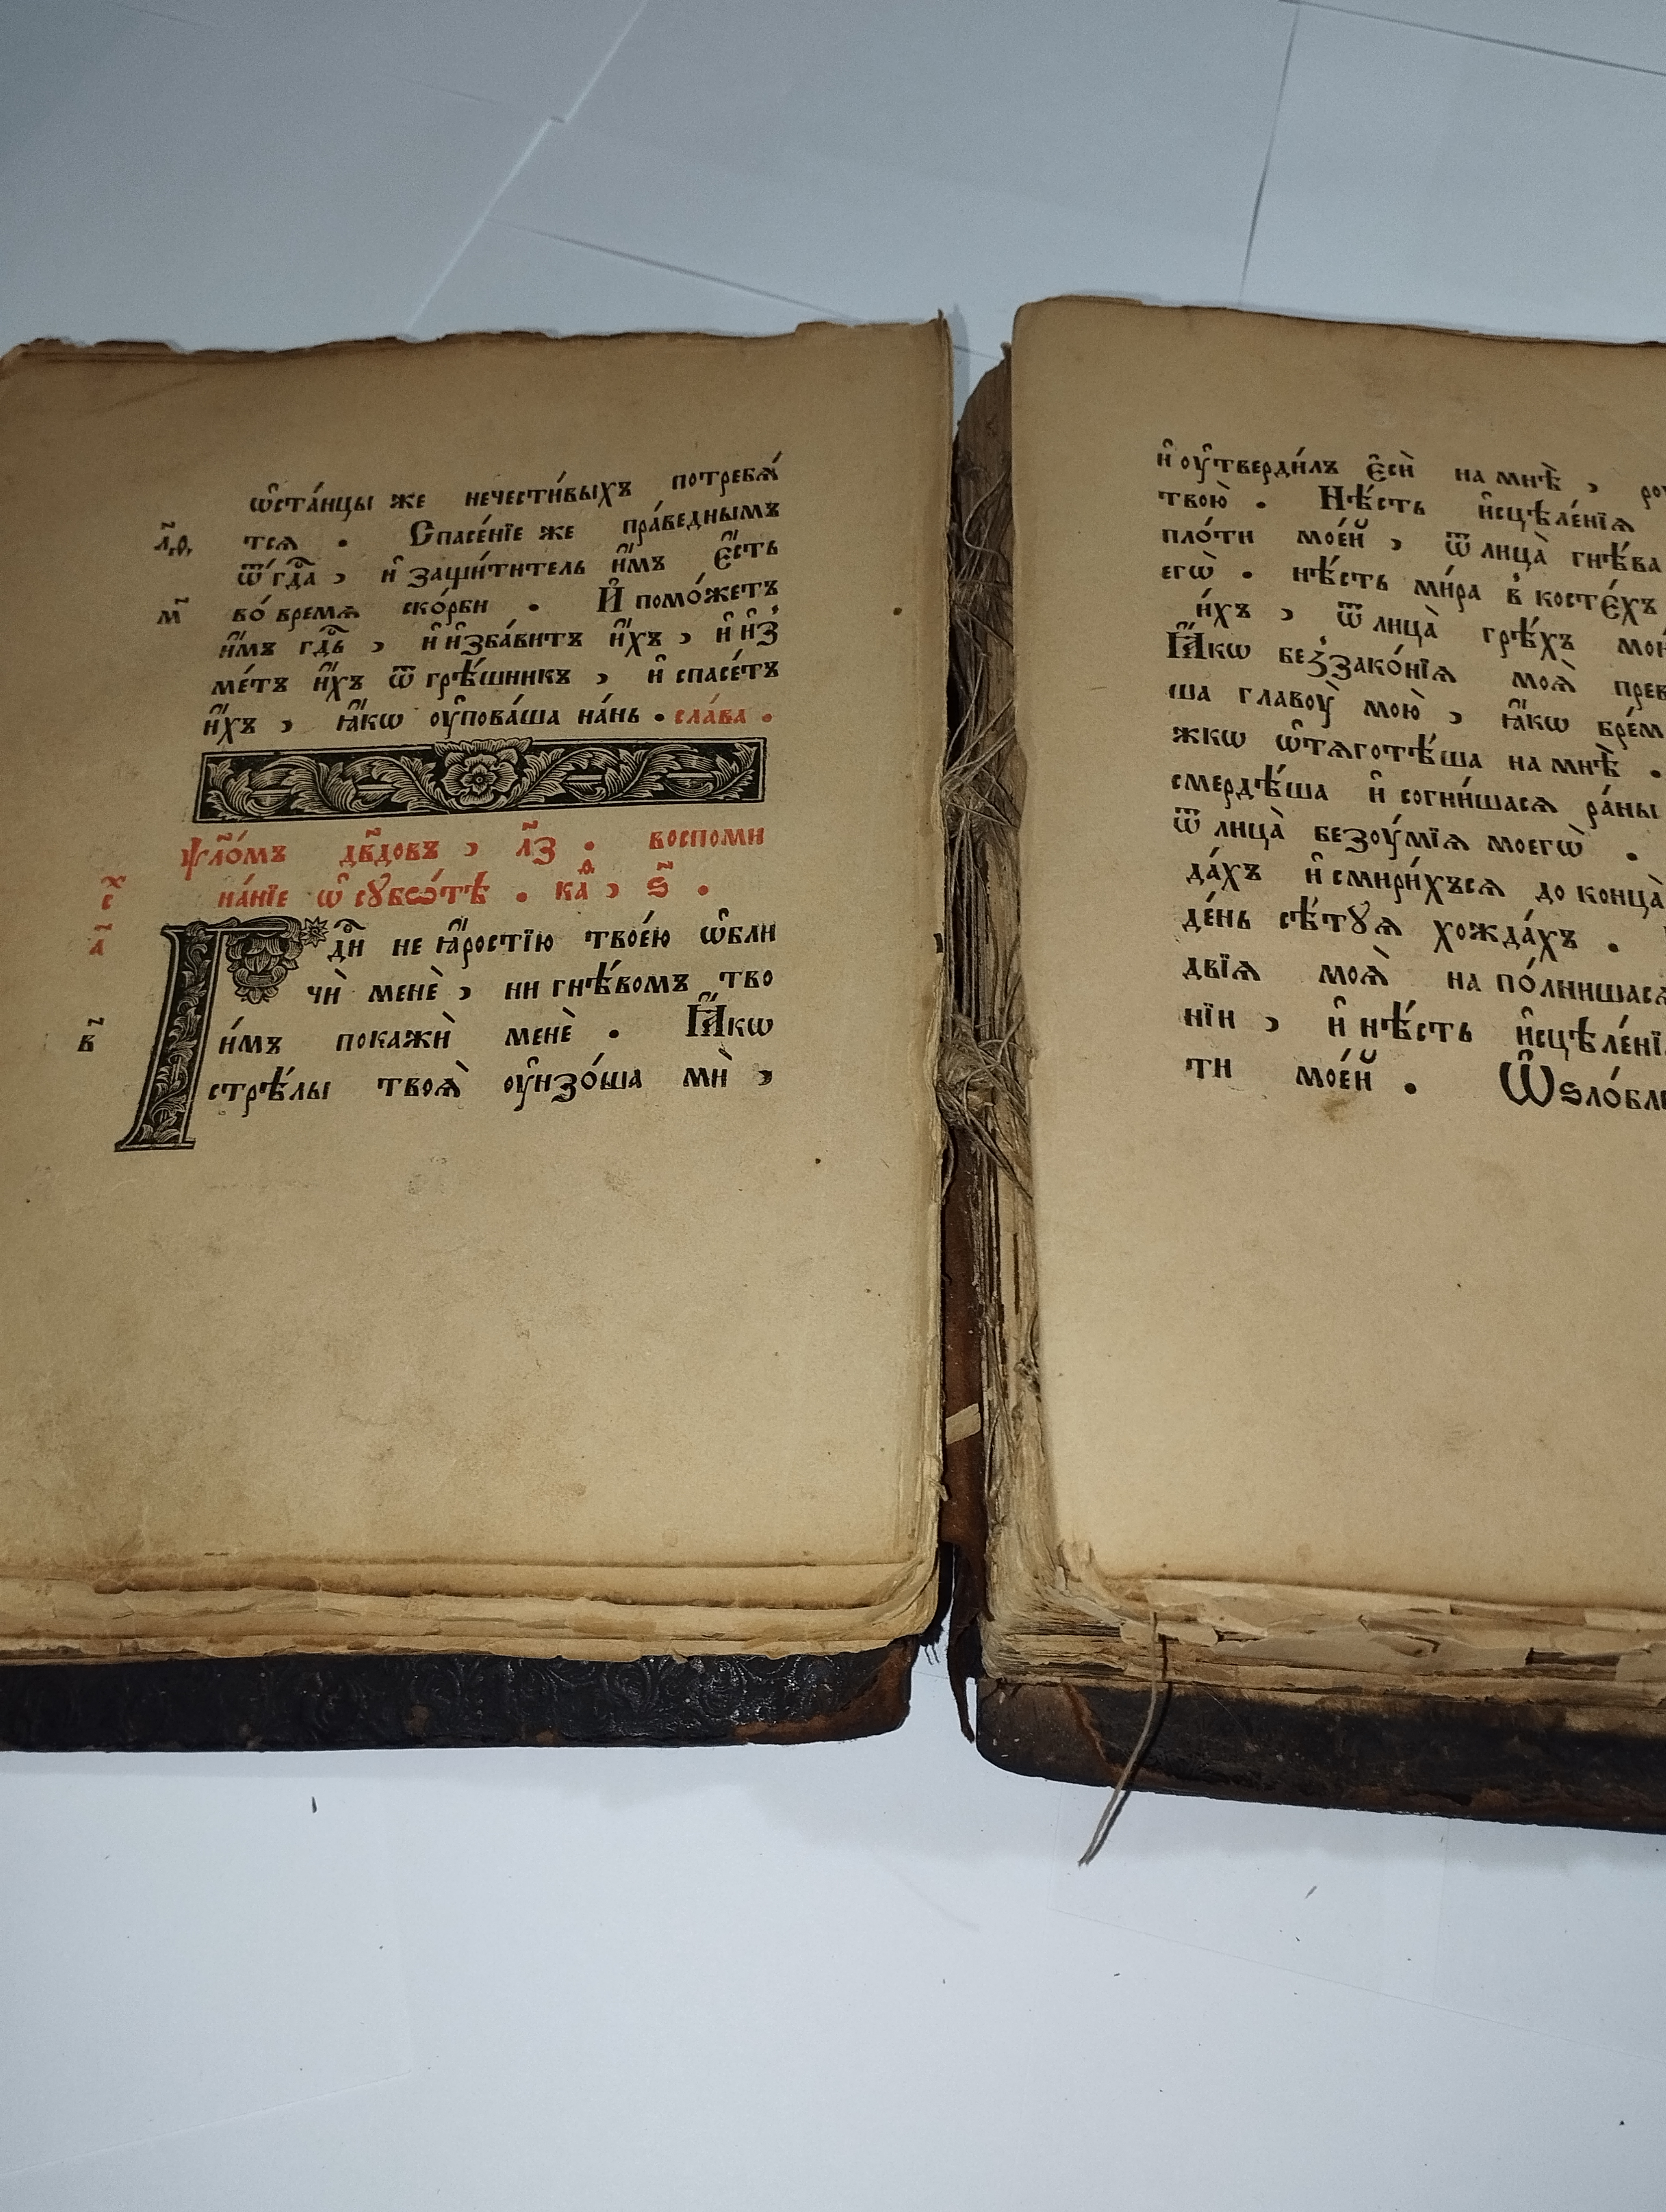 ѡ҆ста́нцы же нечести́выхъ потребѧ́
л҃ѳ тсѧ . Спасе́нїе же пра́веднымъ
ѿ гд҇а , и҆ защи́титель и҆̀мъ є҆́сть
м҃ во́ времѧ ско́рби . И҆ помо́жетъ
и҆̀мъ гд҇ь , и҆ и҆зба́витъ и҆̀хъ , и҆ и҆з̾
ме́тъ и҆̀хъ ѿ грѣ́шникъ , и҆ спасе́тъ
и҆̀хъ , ꙗ҆́кѡ ѹ҆пова́ша на́нь . сла́ва .
ѱло́мъ дв҃довъ , л҃з . воспоми
на́нїе ѡ҆ сꙋбѡ́тѣ . каѳ , ѕ҃ .
а҃ Гд҇и не ꙗ҆́ростїю твое́ю ѡ҆бли
чѝ менѐ , ни гнѣ́вомъ тво
в҃ и́мъ покажѝ менѐ . Ꙗ҆́кѡ
стрѣ́лы твоѧ̀ ѹ҆нзо́ша мѝ ,
и҆ ѹ҆тверди́лъ є҆сѝ на мнѣ̀ ,
твою̀ . Нѣ́сть и҆сцѣле́нїѧ
пло́ти мое́й , ѿ лица̀ гнѣ́ва
егѡ̀ . нѣ́сть ми́ра в̾ косте́хъ
и́хъ , ѿ лица̀ грѣ́хъ
Ꙗ҆́кѡ без̾зако́нїѧ моѧ̀
ша главоу̀ мою̀ , ꙗ҆́кѡ
жкѡ ѡ҆тѧготѣ́ша на мнѣ̀ .
смердѣ́ша и҆ согни́шасѧ ра́ны
ѿ лица̀ безѹ́мїѧ моегѡ̀ .
да́хъ и҆ смири́хъсѧ до конца̀
де́нь сѣ́тꙋѧ хожда́хъ .
двїѧ моѧ̀ на по́лнишасѧ
нїи , и҆ нѣ́сть
ти мое́й .